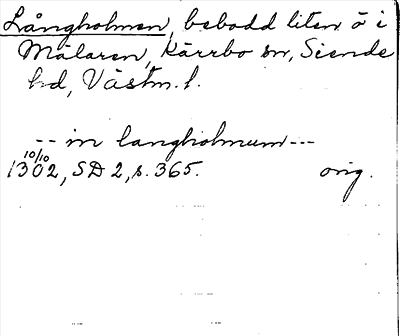 Långholmen, bebodd liten ö i
Mälaren, Kärrbo sn, Siende
hd, Västm. l.
-- in langholmum ---
10/10
1302, SD 2, s. 365. orig.